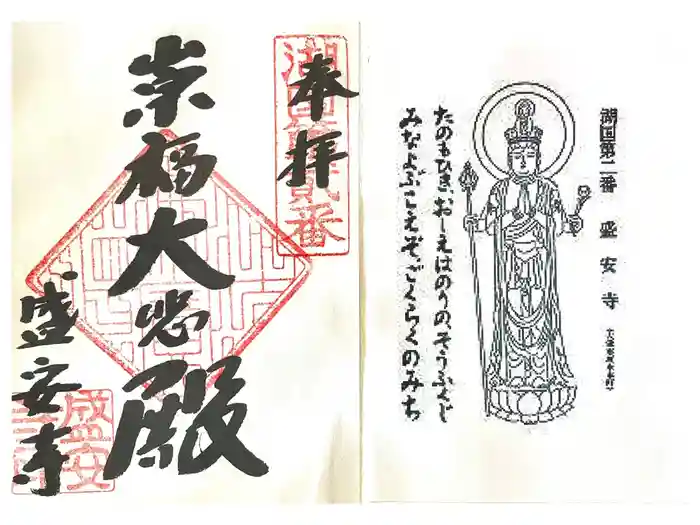 奉拝
湖国第貳番
崇福大悲殿
盛安寺
盛安
湖国第二番 盛安寺
たのもひき、おーえはのりの、そうふくじ
みなよぶこえぞ、ごくらくのみち